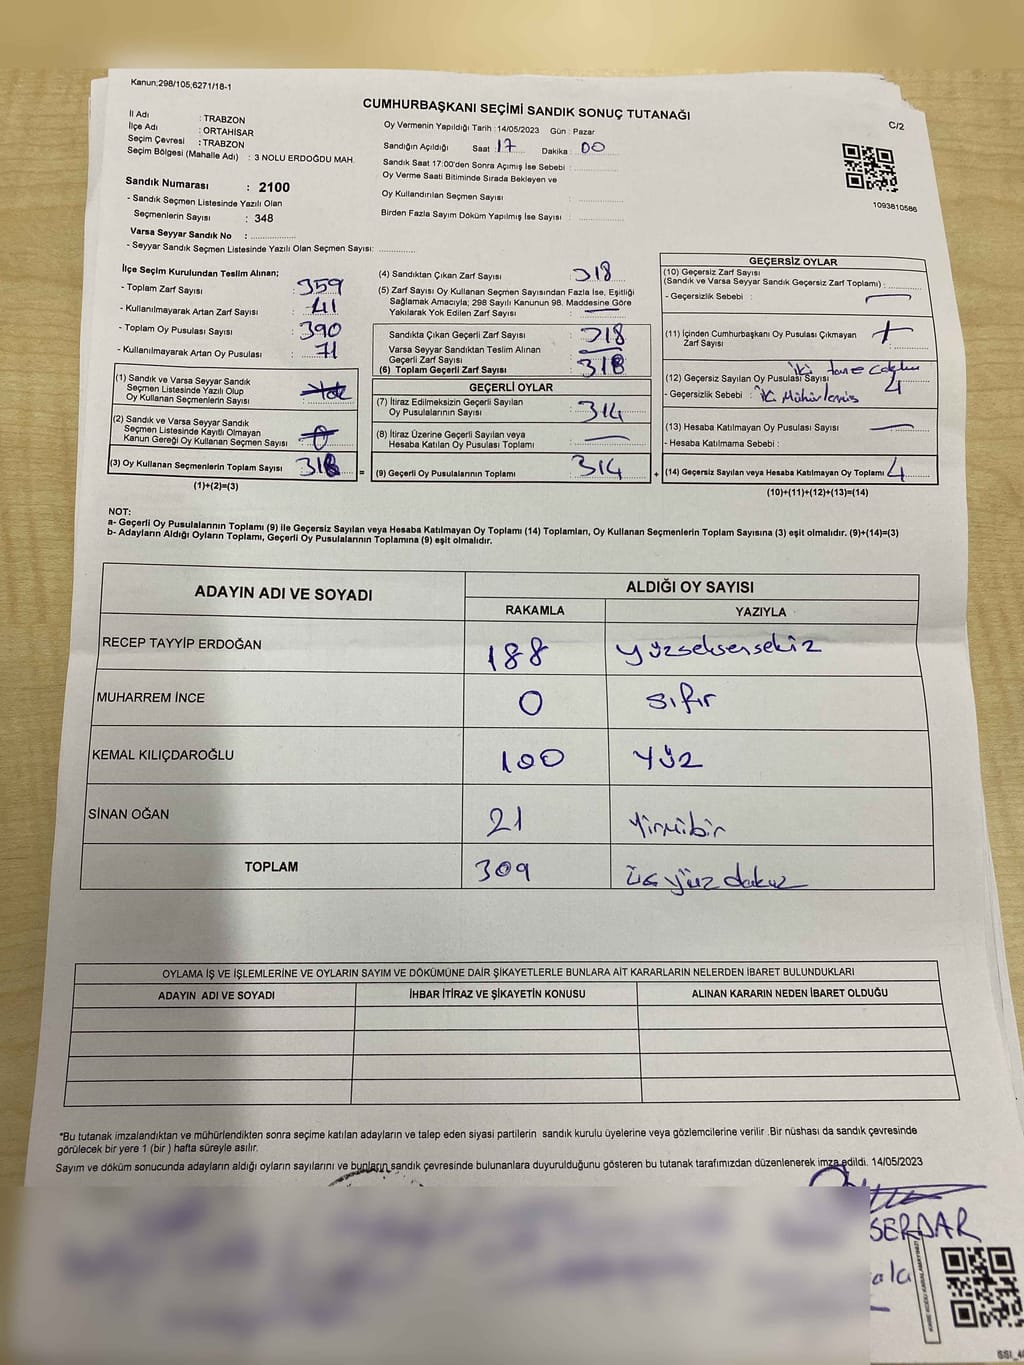 Kanun;298/105,6271/18-1
CUMHURBAŞKANI SEÇİMİ SANDIK SONUÇ TUTANAĞI
C/2
İl Adı : TRABZON
İlçe Adı : ORTAHİSAR
Seçim Çevresi : TRABZON
Seçim Bölgesi (Mahalle Adı) : 3 NOLU ERDOĞDU MAH.
Sandık Numarası : 2100
- Sandık Seçmen Listesinde Yazılı Olan
Seçmenlerin Sayısı : 348
Varsa Seyyar Sandık No :
- Seyyar Sandık Seçmen Listesinde Yazılı Olan Seçmen Sayısı:
Oy Vermenin Yapıldığı Tarih : 14/05/2023 Gün : Pazar
Sandığın Açıldığı Saat : 17 Dakika : 00
Sandık Saat 17:00'den Sonra Açımış İse Sebebi :
Oy Verme Saati Bitiminde Sırada Bekleyen ve
Oy Kullandırılan Seçmen Sayısı :
Birden Fazla Sayım Döküm Yapılmış İse Sayısı :
1093810586
İlçe Seçim Kurulundan Teslim Alınan;
- Toplam Zarf Sayısı : 359
- Kullanılmayarak Artan Zarf Sayısı : 41
- Toplam Oy Pusulası Sayısı : 390
- Kullanılmayarak Artan Oy Pusulası : 71
(1) Sandık ve Varsa Seyyar Sandık
Seçmen Listesinde Yazılı Olup
Oy Kullanan Seçmenlerin Sayısı :
(2) Sandık ve Varsa Seyyar Sandık
Seçmen Listesinde Kayıtlı Olmayan
Kanun Gereği Oy Kullanan Seçmen Sayısı : 0
(3) Oy Kullanan Seçmenlerin Toplam Sayısı : 318
(1)+(2)=(3)
(4) Sandıktan Çıkan Zarf Sayısı : 318
(5) Zarf Sayısı Oy Kullanan Seçmen Sayısından Fazla İse, Eşitliği
Sağlamak Amacıyla; 298 Sayılı Kanunun 98. Maddesine Göre
Yakılarak Yok Edilen Zarf Sayısı :
Sandıkta Çıkan Geçerli Zarf Sayısı : 318
Varsa Seyyar Sandıktan Teslim Alınan
Geçerli Zarf Sayısı :
(6) Toplam Geçerli Zarf Sayısı : 318
GEÇERLİ OYLAR
(7) İtiraz Edilmeksizin Geçerli Sayılan
Oy Pusulalarının Sayısı : 314
(8) İtiraz Üzerine Geçerli Sayılan veya
Hesaba Katılan Oy Pusulası Toplamı :
= (9) Geçerli Oy Pusulalarının Toplamı : 314
GEÇERSİZ OYLAR
(10) Geçersiz Zarf Sayısı
(Sandık ve Varsa Seyyar Sandık Geçersiz Zarf Toplamı) :
- Geçersizlik Sebebi :
(11) İçinden Cumhurbaşkanı Oy Pusulası Çıkmayan
Zarf Sayısı :
(12) Geçersiz Sayılan Oy Pusulası Sayısı : 4
iki tane
- Geçersizlik Sebebi : iki Mühürlemiş
(13) Hesaba Katılmayan Oy Pusulası Sayısı :
- Hesaba Katılmama Sebebi :
+ (14) Geçersiz Sayılan veya Hesaba Katılmayan Oy Toplamı : 4
(10)+(11)+(12)+(13)=(14)
NOT:
a- Geçerli Oy Pusulalarının Toplamı (9) ile Geçersiz Sayılan veya Hesaba Katılmayan Oy Toplamı (14) Toplamları, Oy Kullanan Seçmenlerin Toplam Sayısına (3) eşit olmalıdır. (9)+(14)=(3)
b- Adayların Aldığı Oyların Toplamı, Geçerli Oy Pusulalarının Toplamına (9) eşit olmalıdır.
ADAYIN ADI VE SOYADI ALDIĞI OY SAYISI
RAKAMLA YAZIYLA
RECEP TAYYİP ERDOĞAN 188 yüzseksensekiz
MUHARREM İNCE 0 sıfır
KEMAL KILIÇDAROĞLU 100 YÜZ
SİNAN OĞAN 21 Yirmibir
TOPLAM 309 üç yüz dokuz
OYLAMA İŞ VE İŞLEMLERİNE VE OYLARIN SAYIM VE DÖKÜMÜNE DAİR ŞİKAYETLERLE BUNLARA AİT KARARLARIN NELERDEN İBARET BULUNDUKLARI
ADAYIN ADI VE SOYADI İHBAR İTİRAZ VE ŞİKAYETİN KONUSU ALINAN KARARIN NEDEN İBARET OLDUĞU
*Bu tutanak imzalandıktan ve mühürlendikten sonra seçime katılan adayların ve talep eden siyasi partilerin sandık kurulu üyelerine veya gözlemcilerine verilir .Bir nüshası da sandık çevresinde
görülecek bir yere 1 (bir ) hafta süreyle asılır.
Sayım ve döküm sonucunda adayların aldığı oyların sayılarını ve bunların sandık çevresinde bulunanlara duyurulduğunu gösteren bu tutanak tarafımızdan düzenlenerek imza edildi. 14/05/2023
SERDAR
KARE KODU KARALAMAYINIZ!